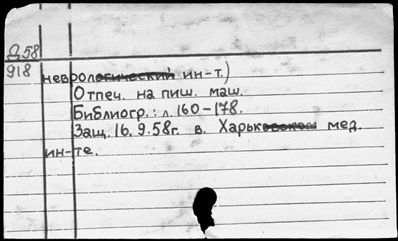 Д58
918
неврологический ин-т.)
Отпеч. на пиш. маш.
Библиогр.: л. 160-178.
Защ. 16.9.58г. в. Харьковском мед.
ин-те.